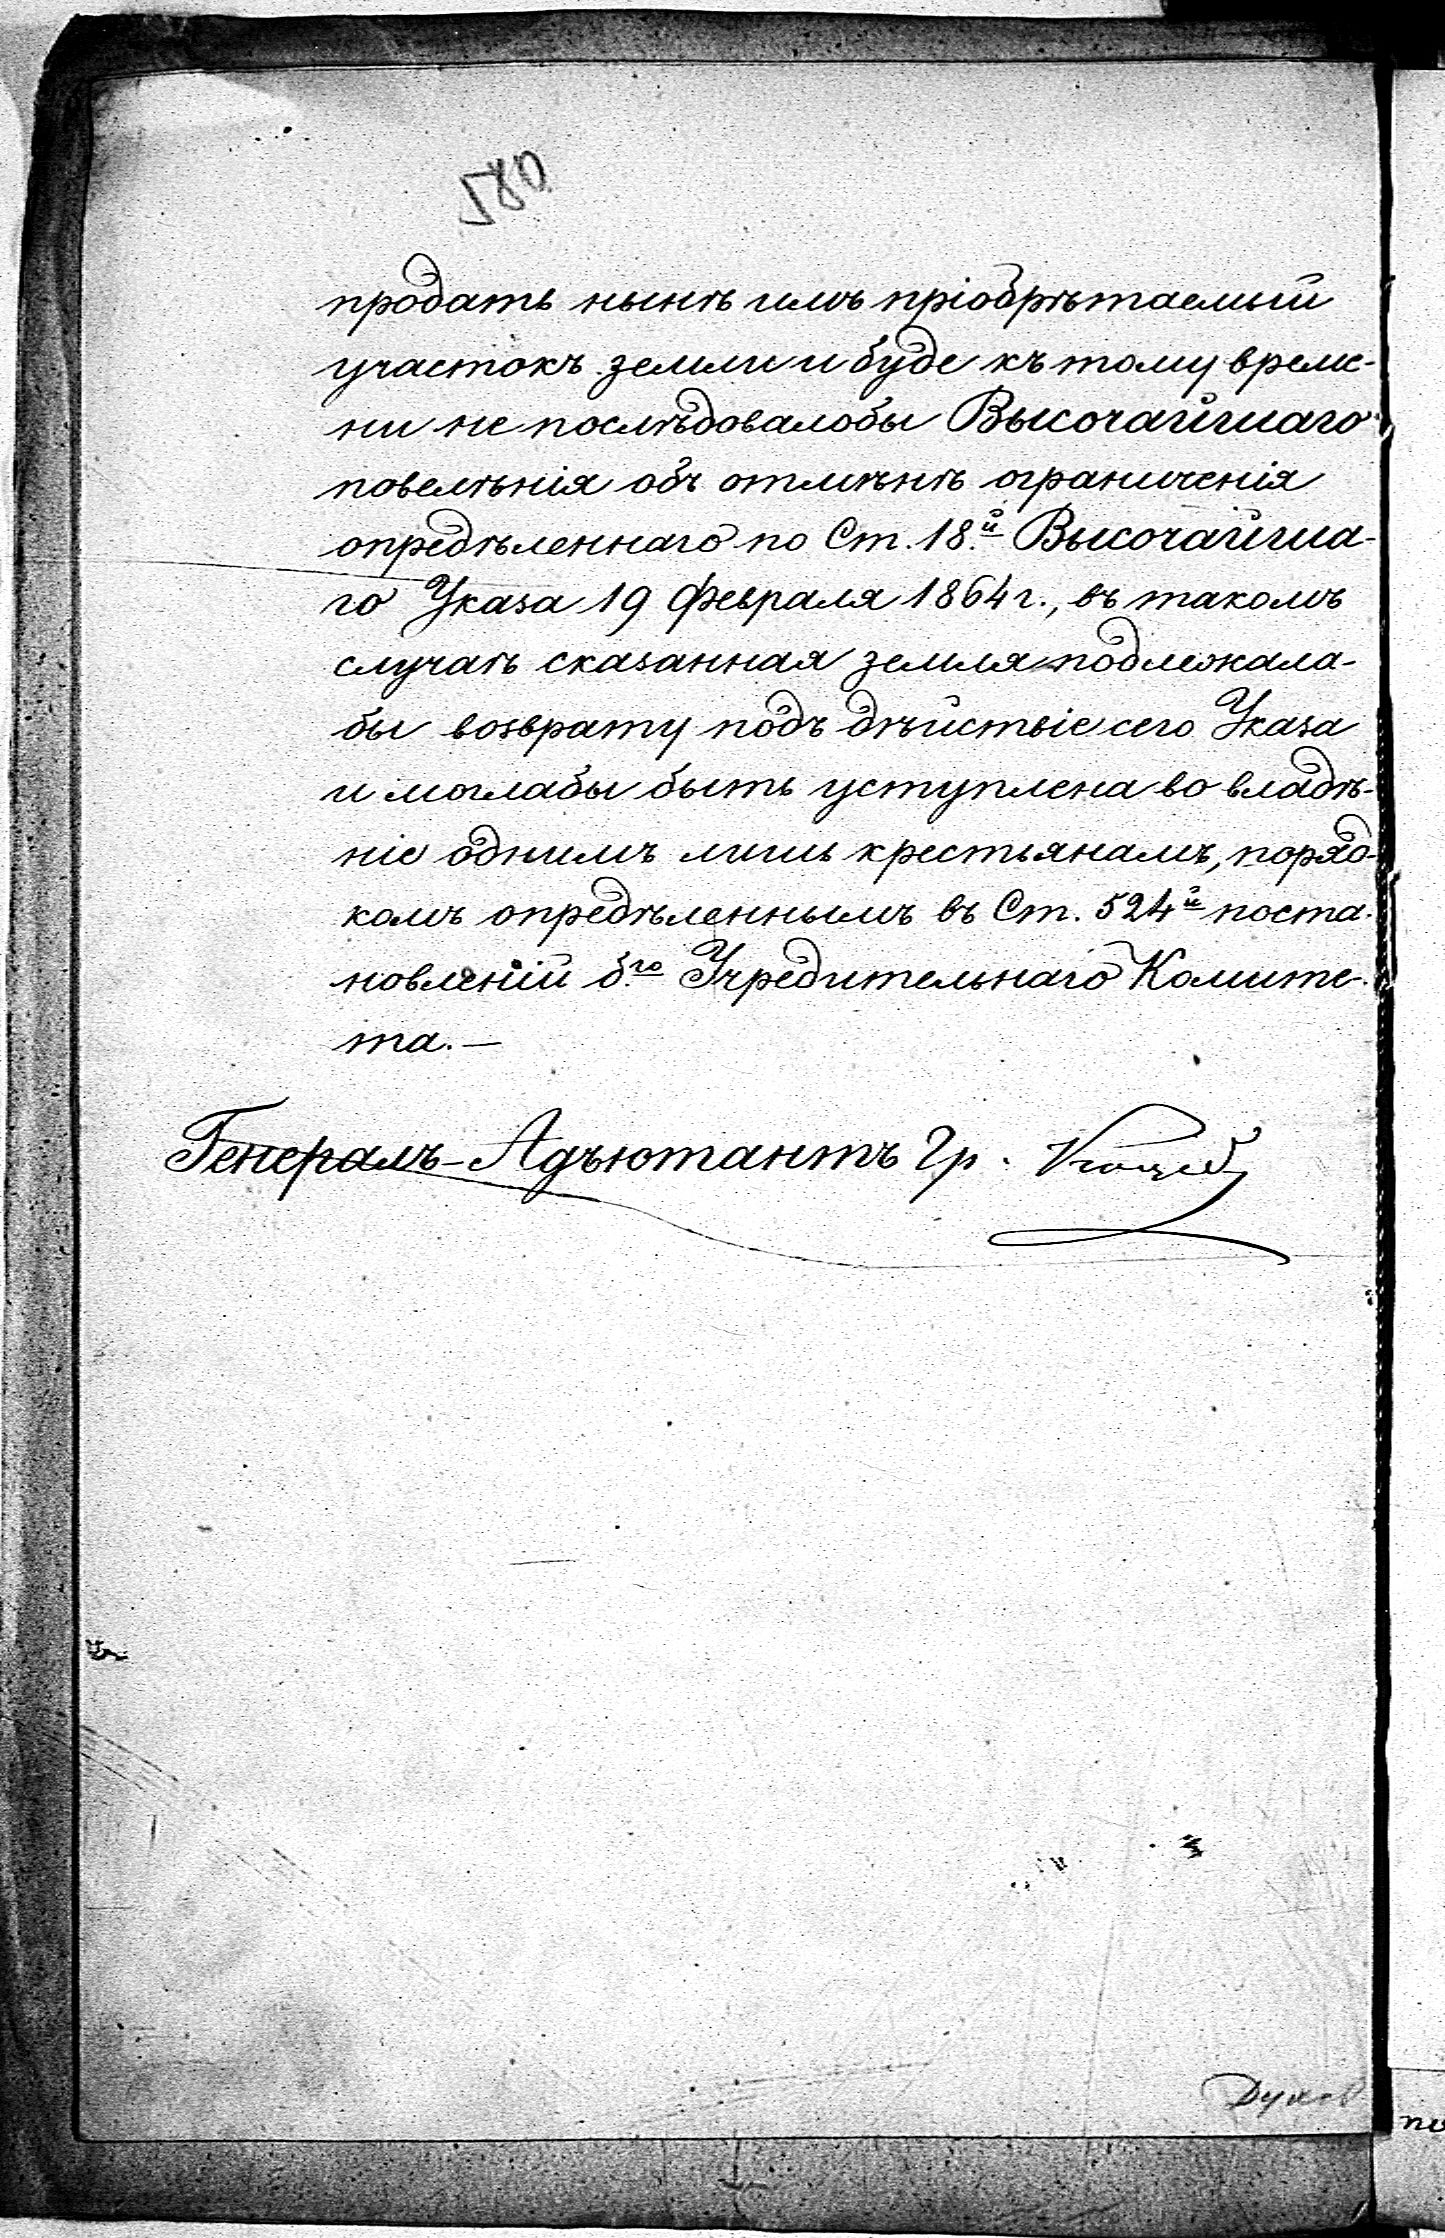 580
продать нынѣ имъ пріобрѣтаемый
участокъ земли и буде къ тому време-
ни не послѣдовалобы Высочайшаго
повелѣнія объ отмѣнѣ ограниченія
опредѣленнаго по Ст. 18.й Высочайша-
го Указа 19 Февраля 1864 г., въ такомъ
случаѣ сказанная земля подлежала-
бы возврату подъ дѣйствіе сего Указа
и моглабы быть уступлена во владѣ-
ніе однимъ лишь крестьянамъ, поряд-
комъ опредѣленнымъ въ Ст. 524й поста-
новленій б.го Учредительнаго Комите-
та.—
Генералъ-Адъютантъ Гр. Коцебу